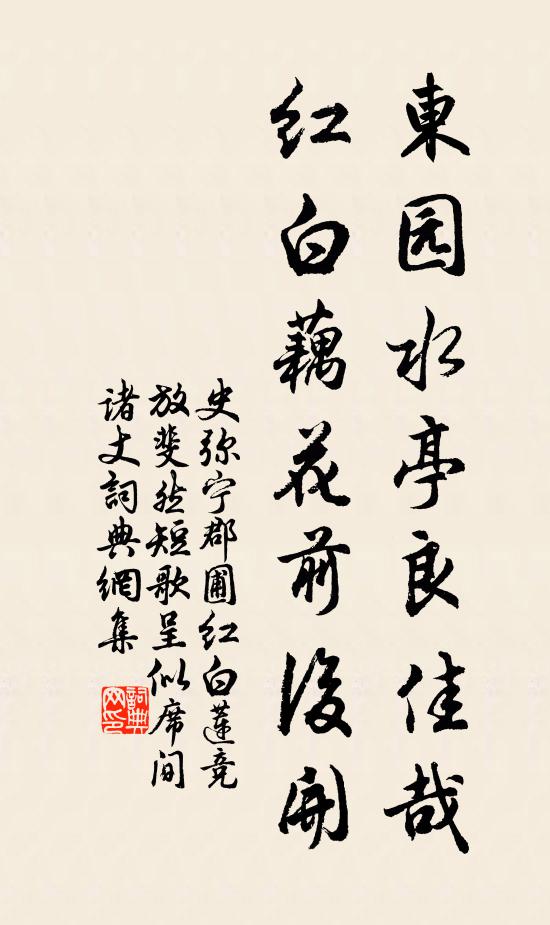 東园水亭良佳哉
红白藕花前後開
史弥宁郡圃红白莲竞
放斐然短歌呈似席间
诸丈詞典網集
詞典
网印